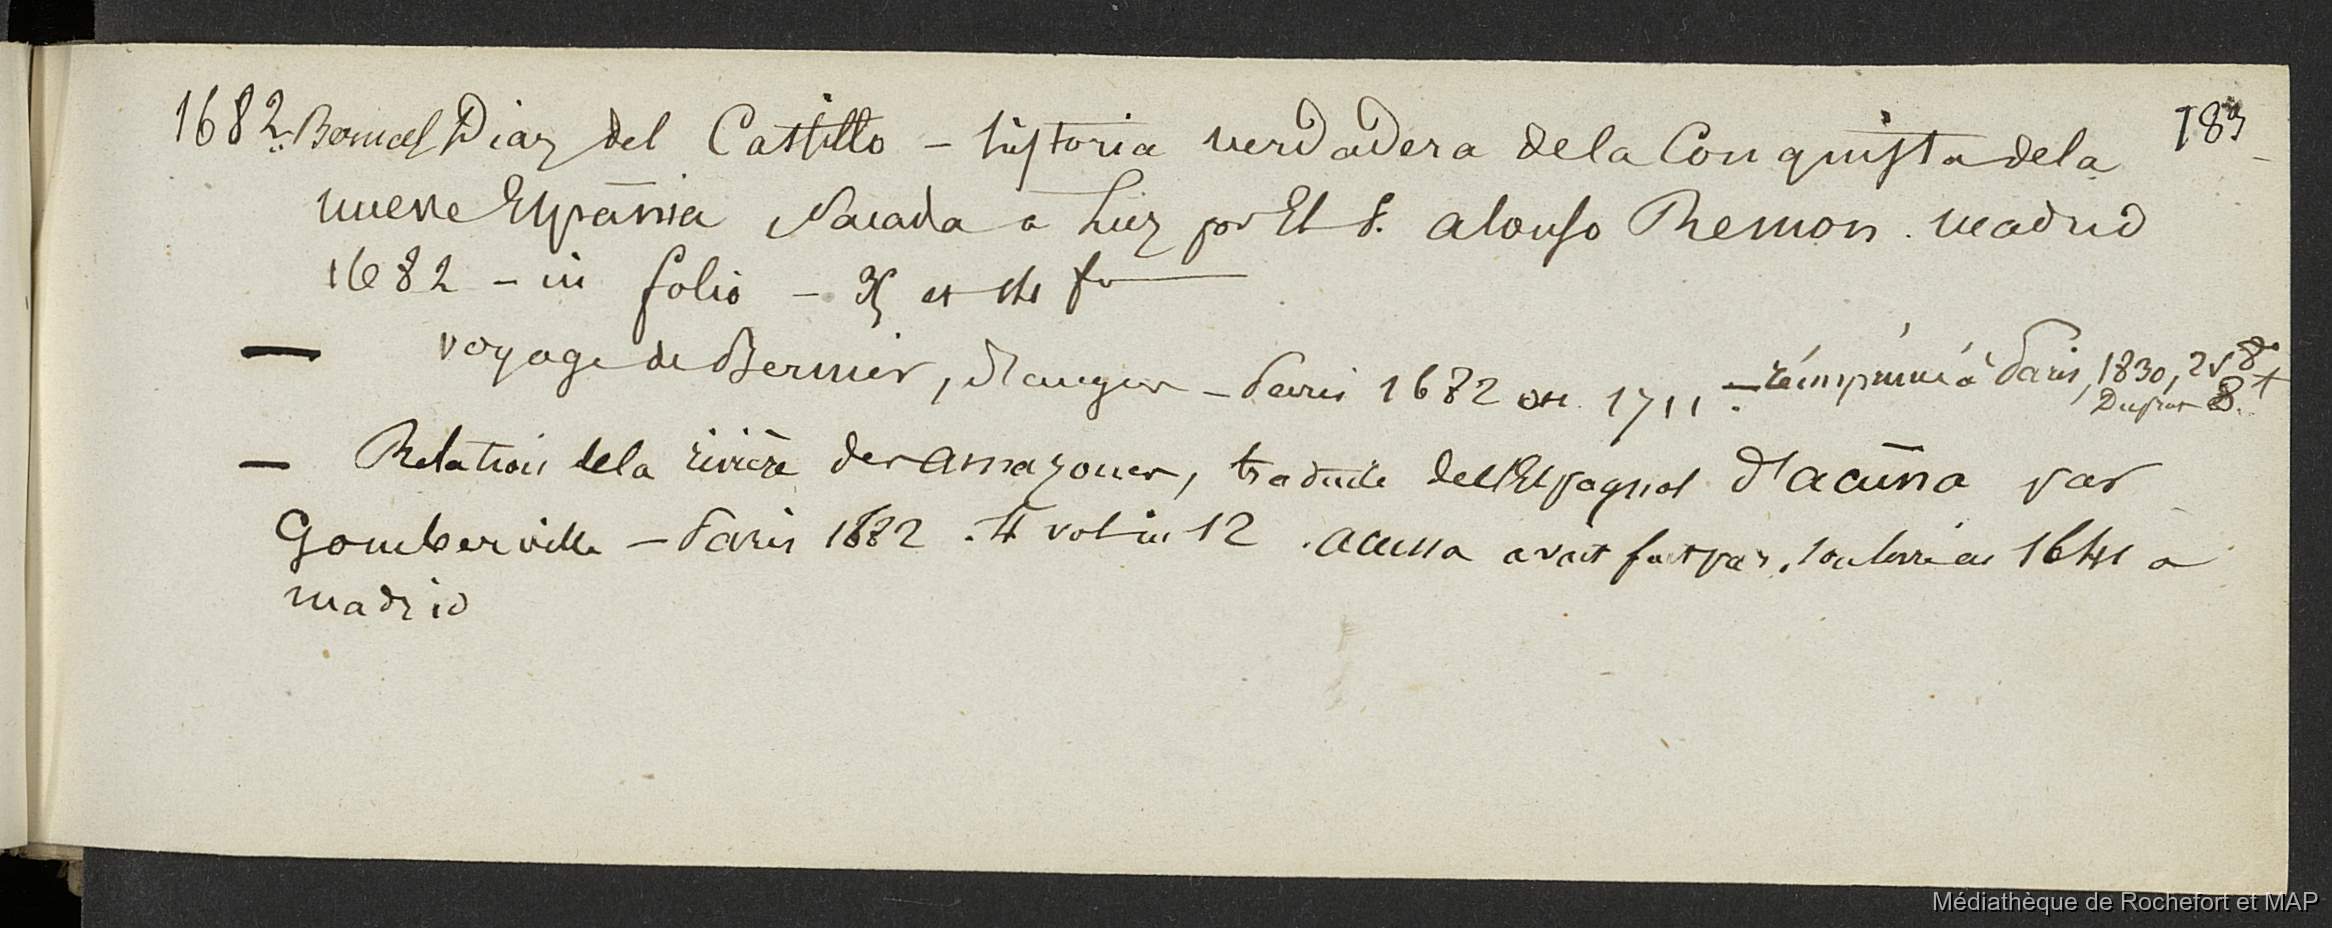 1682. Bernal Diaz del Castillo – historia verdadera de la Conquista de la 183
nueve España Sacada a luz por El P. alonso Remon. madrid
1682 – in folio – et fr
— voyage de Bernier, – Paris 1682 ou 1711 – réimprimé à Paris, 1830, 2 v 8°
— Relation de la rivière des amazones, traduite de l'Espagnol d'acuña par
Gomberville – Paris 1682. 4 vol in 12. acuna avait fait en 1641 a
madrid
Médiathèque de Rochefort et MAP